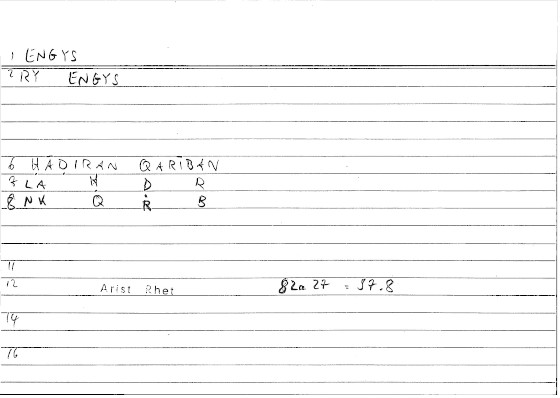 1 ENGYS
2 RY ENGYS
6 ḤĀḌIRAN QARĪBAN
7 LA Ḥ Ḍ R
8 NK Q R B
11
12 Arist Rhet 82a 27 = 37.8
14
16